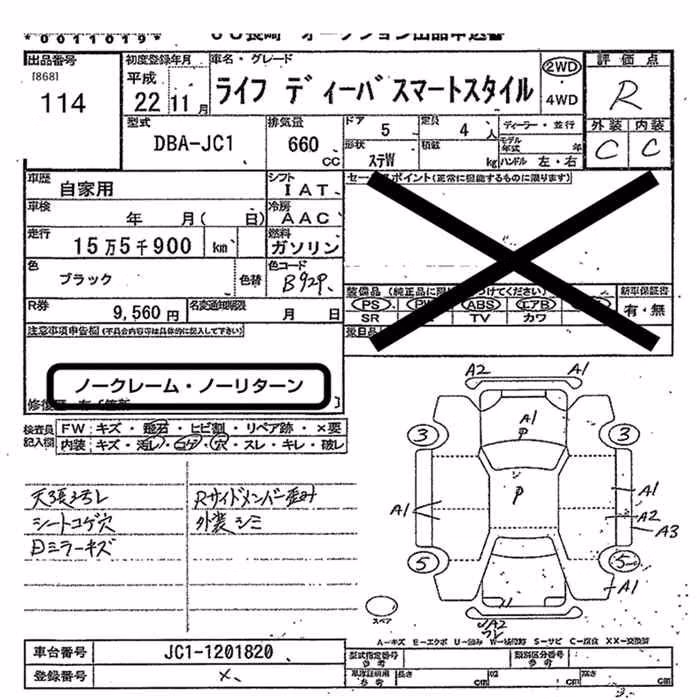 *0011019*
出品番号
[868]
114
初度登録年月
平成
22年11月
車名・グレード
ライフ ディーバスマートスタイル
2WD
・4WD
評価点
R
外装 内装
C C
型式
DBA-JC1
排気量
660
cc
ドア 5
定員 4人
ディーラー・並行
形状 ステW
積載 kg
モデル年式 年
ハンドル 左・右
車歴 自家用
シフト IAT
車検 年 月( 日)
冷房 AAC
走行 15万5千900 km
燃料 ガソリン
色 ブラック
色替
色コード B92P
R券 9,560円
名変通知期限 月 日
セールスポイント(正常に機能するものに限ります)
PS ABS エアB
SR TV カワ
新車保証書
有・無
注意事項申告欄(不具合内容等は具体的に記入して下さい)
ノークレーム・ノーリターン
検査員記入欄
FW キズ・飛石・ヒビ割・リペア跡・×要
内装 キズ・汚レ・コゲ・穴・スレ・キレ・破レ
シートコゲ穴
外装シミ
Rサイドメンバー歪み
ミラーキズ
A2 A1
A1
P
3 3
P
A1 A1
A2
A3
5 5
A1
A2
スペア
A-キズ E-エクボ U-凹み W-補修跡 S-サビ C-腐食 XX-交換済
車台番号 JC1-1201820
登録番号 ×
型式指定番号 参考
類別区分番号 参考
長さ cm 幅 cm 高さ cm